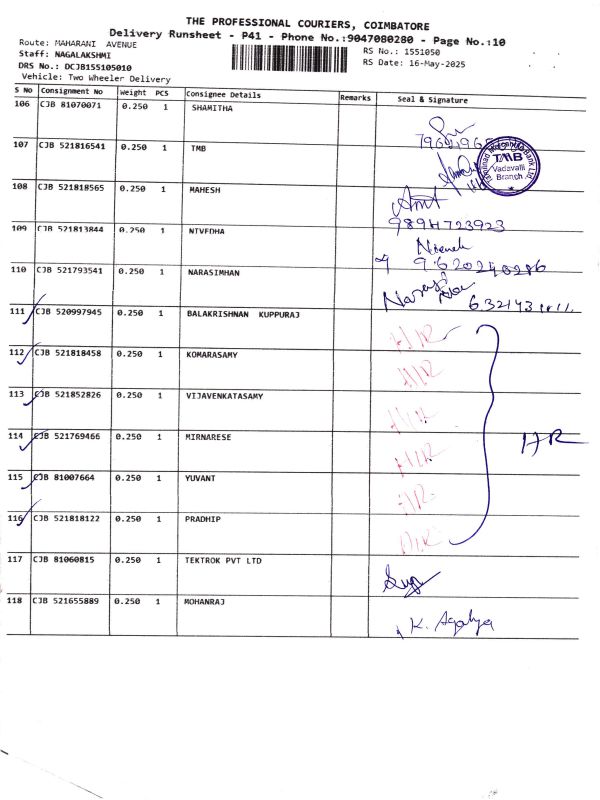 THE PROFESSIONAL COURIERS, COIMBATORE
Delivery Runsheet - P41 - Phone No.:9047080280 - Page No.:10
Route: MAHARANI AVENUE
Staff: NAGALAKSHMI
DRS No.: DCJB155105010
Vehicle: Two Wheeler Delivery
RS No.: 1551050
RS Date: 16-May-2025
S No Consignment No Weight PCS Consignee Details Remarks Seal & Signature
106 CJB 81070071 0.250 1 SHAMITHA
107 CJB 521816541 0.250 1 TMB
TMB
Vadavalli
Branch
108 CJB 521818565 0.250 1 MAHESH
Amt
9894723923
109 CJB 521813844 0.250 1 NIVEDHA
9620240286
110 CJB 521793541 0.250 1 NARASIMHAN
111 CJB 520997945 0.250 1 BALAKRISHNAN KUPPURAJ H/R
112 CJB 521818458 0.250 1 KOMARASAMY H/R
113 CJB 521852826 0.250 1 VIJAVENKATASAMY H/R
114 CJB 521769466 0.250 1 MIRNARESE H/R
HR
115 CJB 81007664 0.250 1 YUVANT H/R
116 CJB 521818122 0.250 1 PRADHIP H/R
117 CJB 81060815 0.250 1 TEKTROK PVT LTD
118 CJB 521655889 0.250 1 MOHANRAJ
K. Agalya